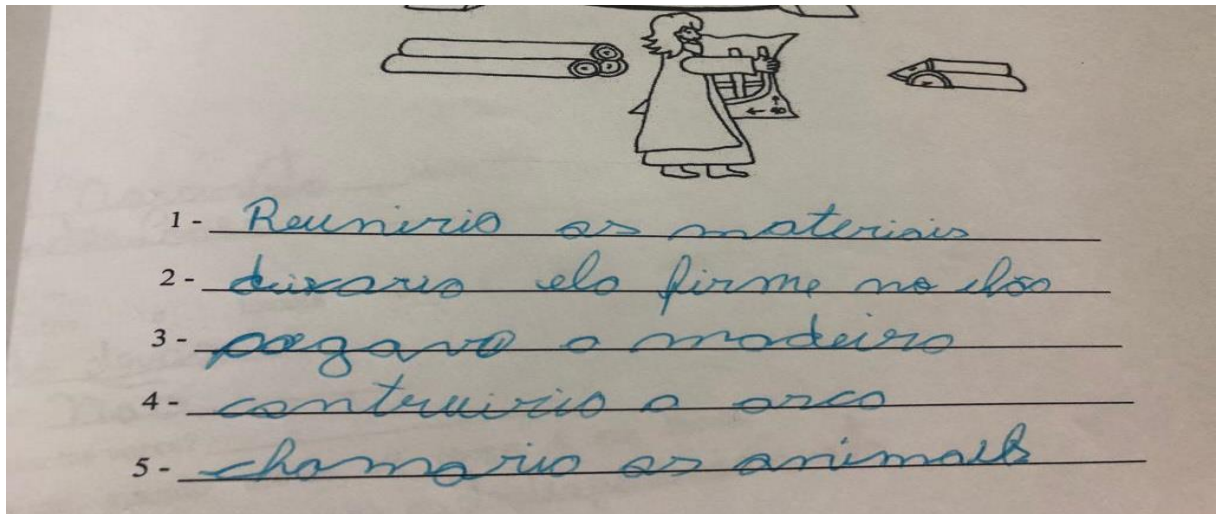 1 - Reuniria os materiais
2 - deixaria ela firme no chão
3 - pegava a madeira
4 - contruiria a arca
5 - chamaria os animais